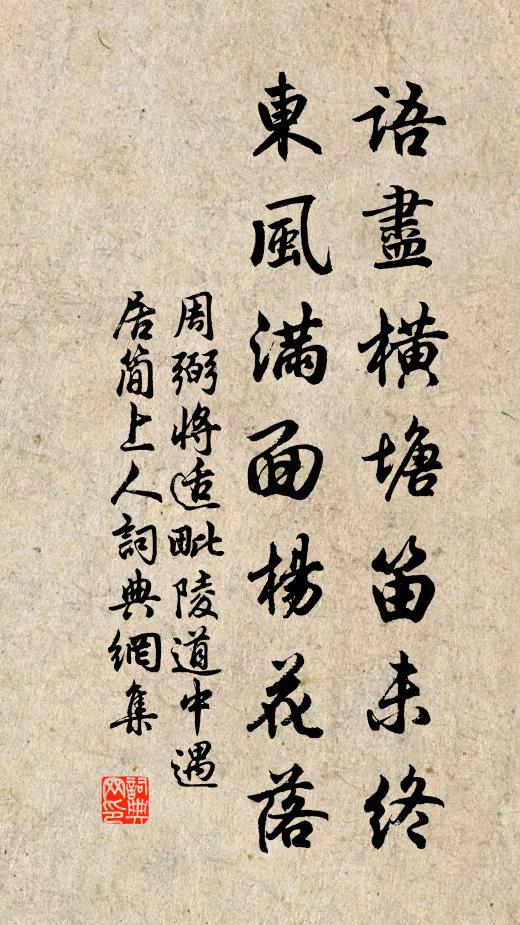 語盡橫塘笛未終
東風滿面楊花落
周弼將适毗陵道中遇
居簡上人詞典網集
詞典
网印